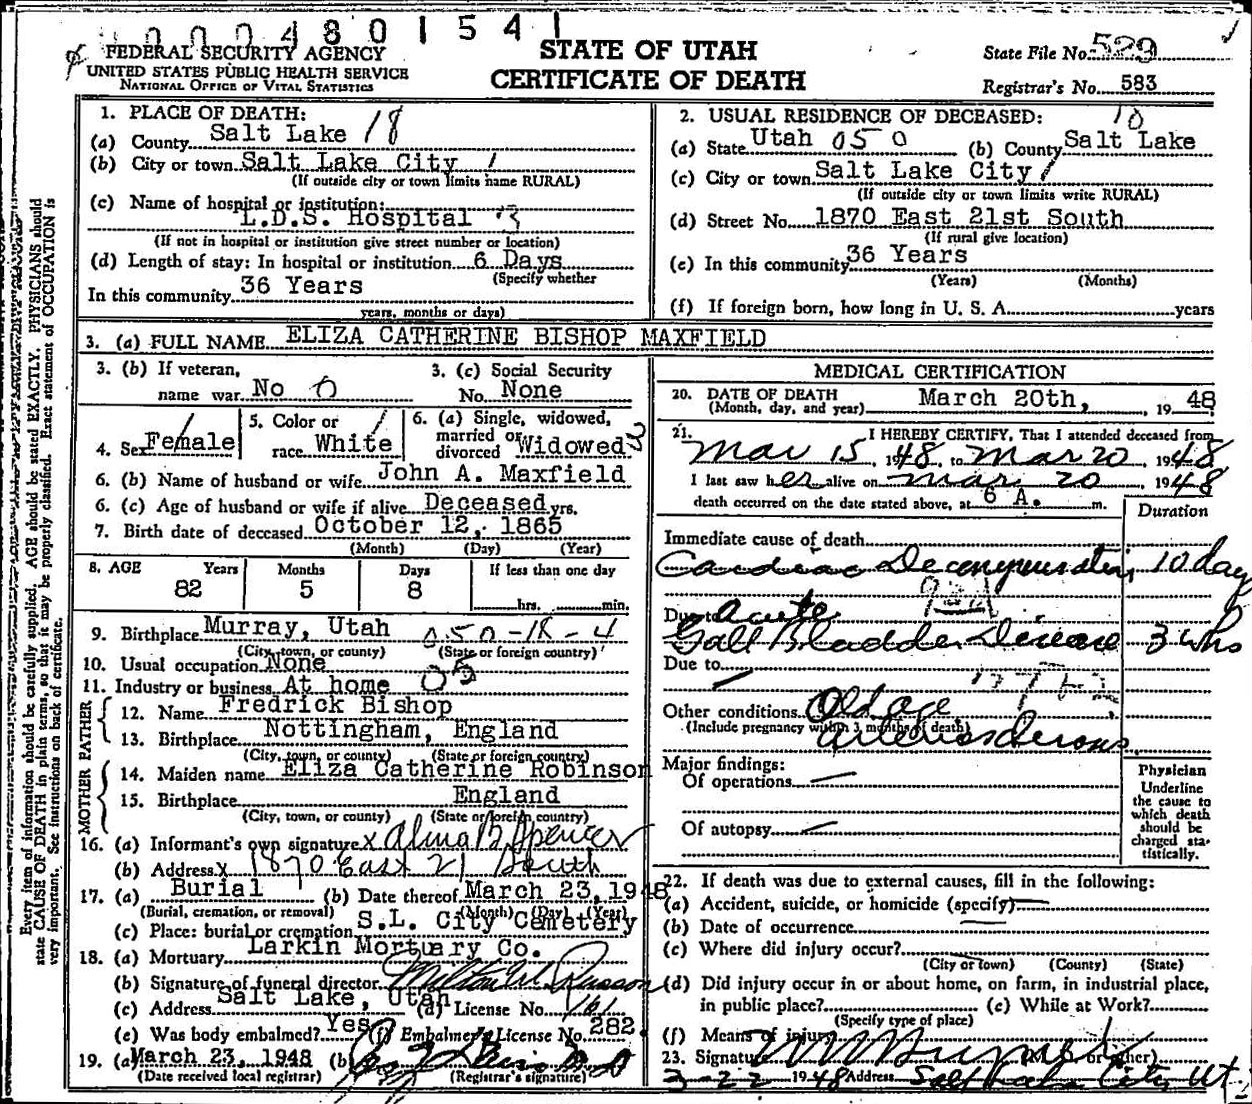 0000480 1541
FEDERAL SECURITY AGENCY
UNITED STATES PUBLIC HEALTH SERVICE
NATIONAL OFFICE OF VITAL STATISTICS
STATE OF UTAH
CERTIFICATE OF DEATH
State File No. 529
Registrar's No. 583
Every item of information should be carefully supplied. AGE should be stated EXACTLY. PHYSICIANS should
state CAUSE OF DEATH in plain terms, so that it may be properly classified. Exact statement of OCCUPATION is
very important. See instructions on back of certificate.
1. PLACE OF DEATH:
(a) County Salt Lake 18
(b) City or town Salt Lake City 1
(If outside city or town limits name RURAL)
(c) Name of hospital or institution:
L.D.S. Hospital 3
(If not in hospital or institution give street number or location)
(d) Length of stay: In hospital or institution 6 Days
(Specify whether
In this community 36 Years
years, months or days)
2. USUAL RESIDENCE OF DECEASED: 18
(a) State Utah 050 (b) County Salt Lake
(c) City or town Salt Lake City 1
(If outside city or town limits write RURAL)
(d) Street No. 1870 East 21st South
(If rural give location)
(e) In this community 36 Years
(Years) (Months)
(f) If foreign born, how long in U. S. A. years
3. (a) FULL NAME ELIZA CATHERINE BISHOP MAXFIELD
3. (b) If veteran,
name war No 0
3. (c) Social Security
No. None
4. Sex Female 1
5. Color or
race White 1
6. (a) Single, widowed,
married or
divorced Widowed 3
6. (b) Name of husband or wife John A. Maxfield
6. (c) Age of husband or wife if alive Deceased yrs.
7. Birth date of deceased October 12, 1865
(Month) (Day) (Year)
8. AGE Years Months Days If less than one day
82 5 8 hrs. min.
9. Birthplace Murray, Utah 050-18-4
(City, town, or county) (State or foreign country)
10. Usual occupation None
11. Industry or business At home 05
FATHER
12. Name Fredrick Bishop
13. Birthplace Nottingham, England
(City, town, or county) (State or foreign country)
MOTHER
14. Maiden name Eliza Catherine Robinson
15. Birthplace England
(City, town, or county) (State or foreign country)
16. (a) Informant's own signature x Alma B. Spencer
(b) Address X 1870 East 21 South
17. (a) Burial (b) Date thereof March 23, 1948
(Burial, cremation, or removal) (Month) (Day) (Year)
(c) Place: burial or cremation S.L. City Cemetery
18. (a) Mortuary Larkin Mortuary Co.
(b) Signature of funeral director
(c) Address Salt Lake, Utah (d) License No. 161
(e) Was body embalmed? Yes (f) Embalmer's License No. 282
19. (a) March 23, 1948 (b)
(Date received local registrar) (Registrar's signature)
MEDICAL CERTIFICATION
20. DATE OF DEATH
(Month, day, and year) March 20th, , 19 48
21. I HEREBY CERTIFY, That I attended deceased from
Mar 15, 1948, to Mar 20, 1948
I last saw her alive on Mar. 20, 1948
death occurred on the date stated above, at 6 A. m.
Duration
Immediate cause of death
Cardiac Decompensation 10 day
Due to Acute
Gall Bladder Disease 3 wks
Due to
Other conditions Old age
(Include pregnancy within 3 months of death)
Arteriosclerosis
Major findings:
Of operations
Of autopsy
Physician
Underline
the cause to
which death
should be
charged sta-
tistically.
22. If death was due to external causes, fill in the following:
(a) Accident, suicide, or homicide (specify)
(b) Date of occurrence
(c) Where did injury occur?
(City or town) (County) (State)
(d) Did injury occur in or about home, on farm, in industrial place,
in public place? (e) While at Work?
(Specify type of place)
(f) Means of injury
23. Signature (M.D. or other)
3-22 1948 Address Salt Lake City, Ut.